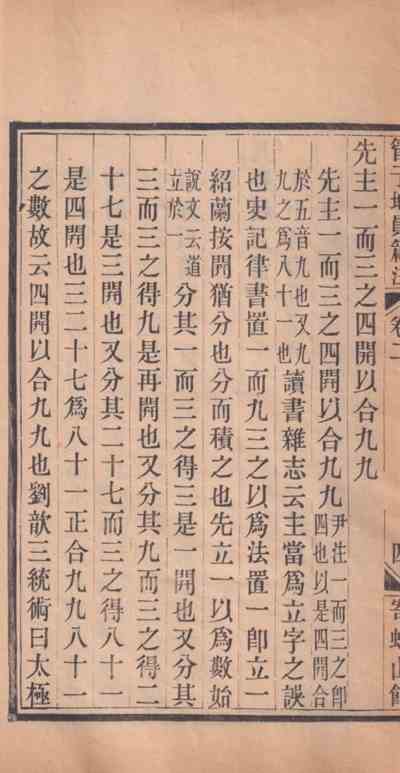 管子地員篇注 卷二 四 寄蛹山館
先主一而三之四開以合九九
先主一而三之四開以合九九尹注一而三之即四也以是四開合
於五音九也又九九之爲八十一也讀書雜志云主當爲立字之誤
也史記律書置一而九三之以爲法置一卽立一
紹蘭按開猶分也分而積之也先立一以爲數始
說文云道立於一分其一而三之得三是一開也又分其
三而三之得九是再開也又分其九而三之得二
十七是三開也又分其二十七而三之得八十一
是四開也三二十七爲八十一正合九九八十一
之數故云四開以合九九也劉歆三統術曰太極